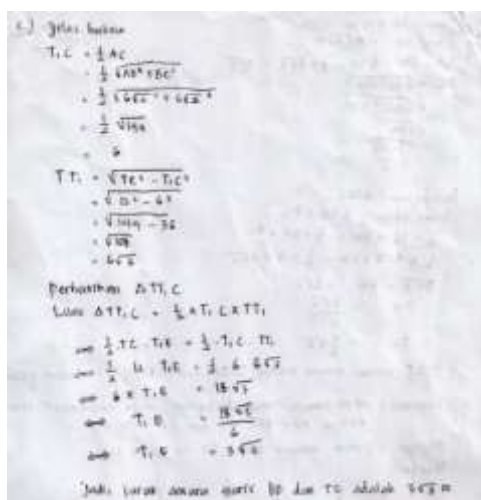 c.) Jelas bahwa
T₁C = ½ AC
= ½ √AB² + BC²
= ½ √6√2² + 6√2²
= ½ √144
= 6
TT₁ = √TC² - T₁C²
= √12² - 6²
= √144 - 36
= √108
= 6√3
Perhatikan Δ TT₁C
Luas ΔTT₁C = ½ × T₁C × TT₁
⇔ ½ TC . T₁E = ½ . T₁C . TT₁
⇔ ½ 12 . T₁E = ½ . 6 6√3
⇔ 6 × T₁E = 18√3
⇔ T₁E = 18√3 / 6
⇔ T₁E = 3√3
Jadi jarak antara garis BD dan TC adalah 3√3